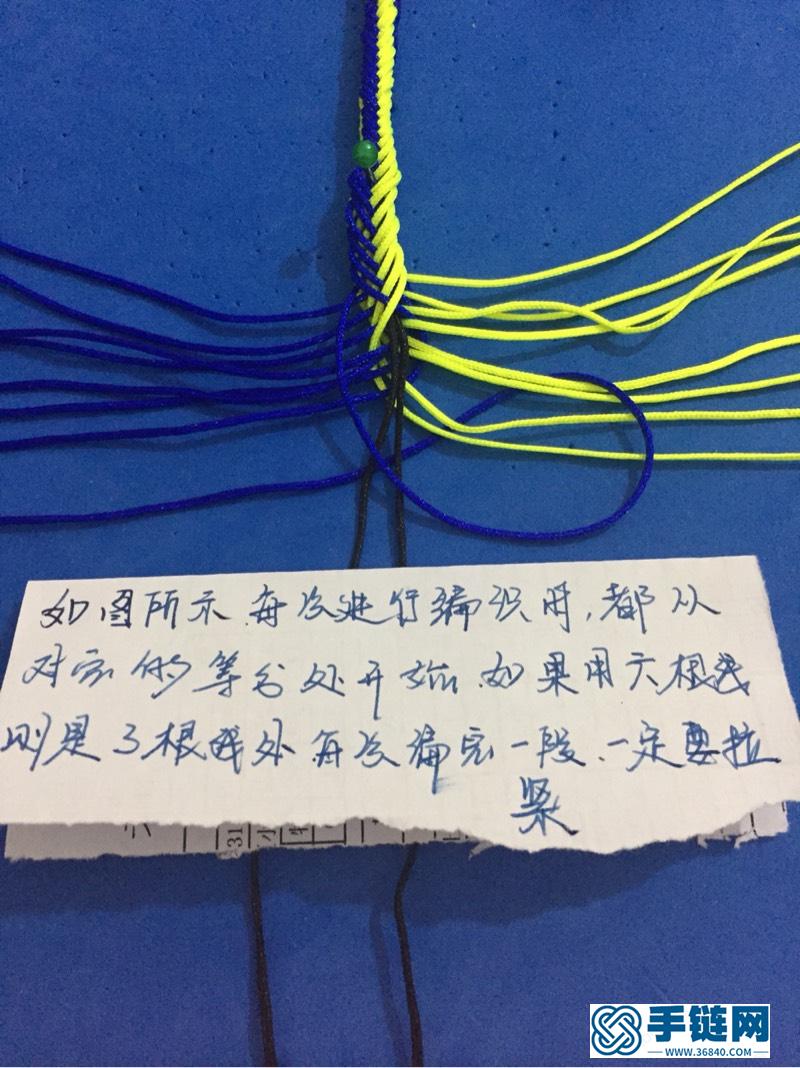 如图所示.每次进行编织时,都从
对应的等分处开始.如果用六根线
则是3根线处.每次编完一段.一定要拉
紧
31
小
手链网
WWW.36840.COM